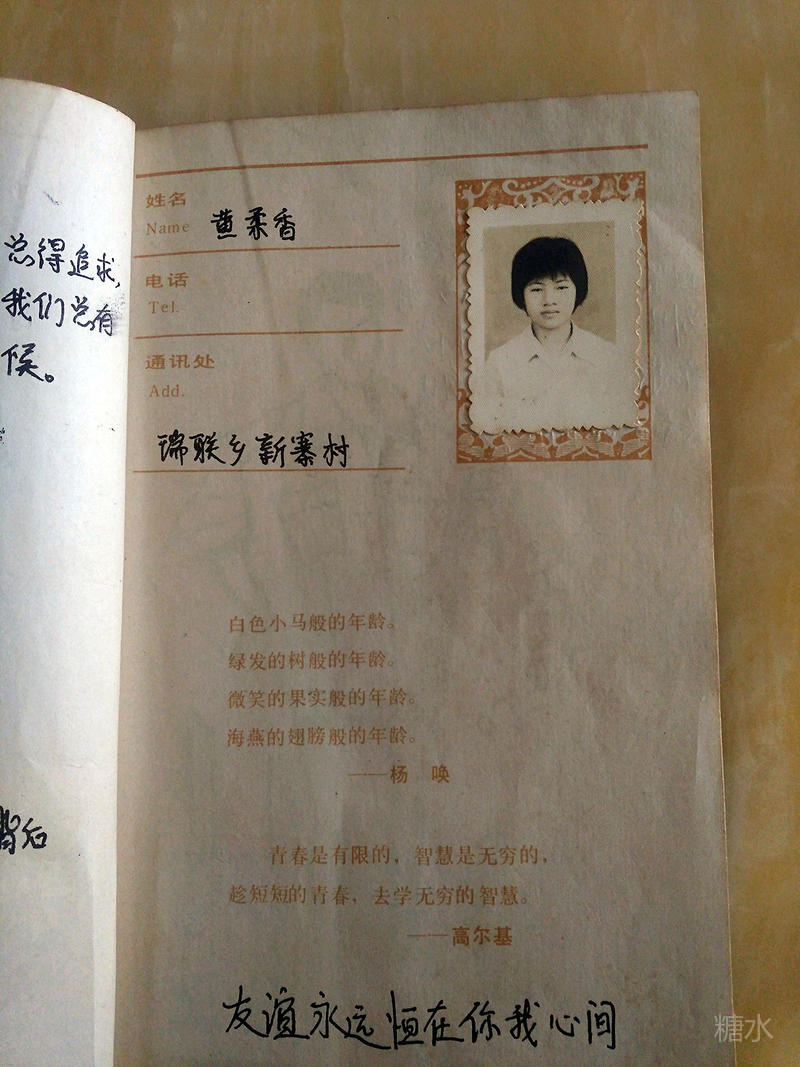 总得追求,
我们总有
候。
背后
姓名
Name 黄柔香
电话
Tel.
通讯处
Add.
瑞联乡新寨村
白色小马般的年龄。
绿发的树般的年龄。
微笑的果实般的年龄。
海燕的翅膀般的年龄。
——杨 唤
青春是有限的，智慧是无穷的，
趁短短的青春，去学无穷的智慧。
——高尔基
友谊永远恒在你我心间
糖水